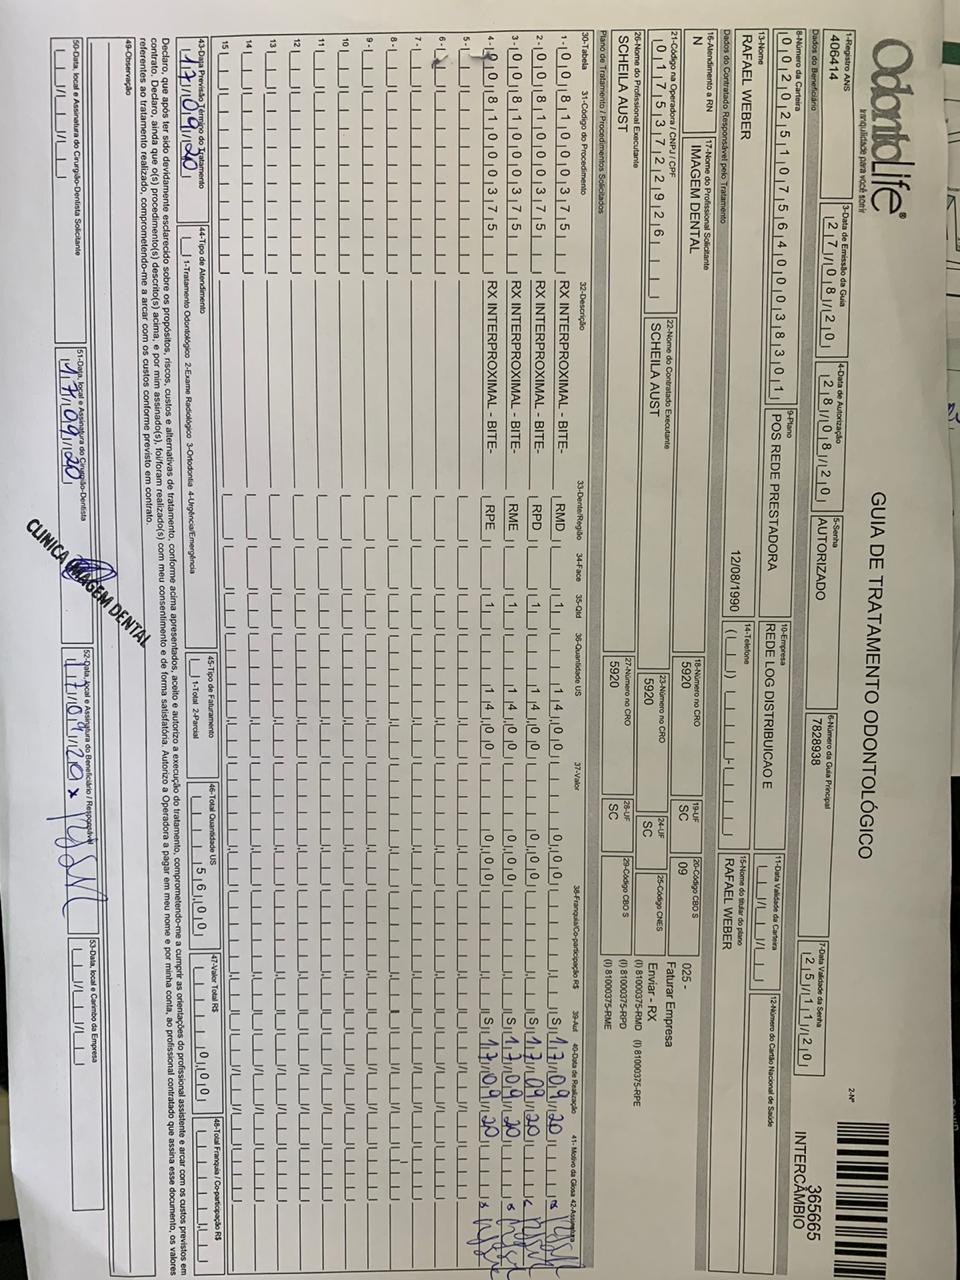 OdontoLife®
tranquilidade para você sorrir
GUIA DE TRATAMENTO ODONTOLÓGICO
2-Nº
365665
INTERCÂMBIO
1-Registro ANS
406414
3-Data de Emissão da Guia
27/08/20
4-Data de Autorização
28/08/20
5-Senha
AUTORIZADO
6-Número da Guia Principal
7828938
7-Data Validade da Senha
25/11/20
Dados do Beneficiário
8-Número da Carteira
00202510756400038301
9-Plano
POS REDE PRESTADORA
10-Empresa
REDE LOG DISTRIBUICAO E
11-Data Validade da Carteira
12-Número do Cartão Nacional de Saúde
13-Nome
RAFAEL WEBER
12/08/1990
14-Telefone
15-Nome do titular do plano
RAFAEL WEBER
Dados do Contratado Responsável pelo Tratamento
16-Atendimento a RN
N
17-Nome do Profissional Solicitante
IMAGEM DENTAL
18-Número no CRO
5920
19-UF
SC
20-Código CBO S
09
025 -
Faturar Empresa
Enviar - RX
(I) 81000375-RMD (I) 81000375-RPE
(I) 81000375-RPD
(I) 81000375-RME
21-Código na Operadora / CNPJ / CPF
01753722926
22-Nome do Contratado Executante
SCHEILA AUST
23-Número no CRO
5920
24-UF
SC
25-Código CNES
26-Nome do Profissional Executante
SCHEILA AUST
27-Número no CRO
5920
28-UF
SC
29-Código CBO S
Plano de Tratamento / Procedimentos Solicitados
30-Tabela 31-Código do Procedimento 32-Descrição 33-Dente/Região 34-Face 35-Qtd 36-Quantidade US 37-Valor 38-Franquia/Co-participação R$ 39-Aut 40-Data de Realização 41- Motivo da Glosa 42-Assinatura
1- 00 81000375 RX INTERPROXIMAL - BITE- RMD 1 14,00 0,00 S 17/09/20
2- 00 81000375 RX INTERPROXIMAL - BITE- RPD 1 14,00 0,00 S 17/09/20
3- 00 81000375 RX INTERPROXIMAL - BITE- RME 1 14,00 0,00 S 17/09/20
4- 00 81000375 RX INTERPROXIMAL - BITE- RPE 1 14,00 0,00 S 17/09/20
5-
6-
7-
8-
9-
10-
11-
12-
13-
14-
15-
43-Data Previsão Término do Tratamento
17/09/20
44-Tipo de Atendimento
1-Tratamento Odontológico 2-Exame Radiológico 3-Ortodontia 4-Urgência/Emergência
45-Tipo de Faturamento
1-Total 2-Parcial
46-Total Quantidade US
56,00
47-Valor Total R$
0,00
48-Total Franquia / Co-participação R$
Declaro, que após ter sido devidamente esclarecido sobre os propósitos, riscos, custos e alternativas de tratamento, conforme acima apresentados, aceito e autorizo a execução do tratamento, comprometendo-me a cumprir as orientações do profissional assistente e arcar com os custos previstos em
contrato. Declaro, ainda que o(s) procedimento(s) descrito(s) acima, e por mim assinado(s), foi/foram realizado(s) com meu consentimento e de forma satisfatória. Autorizo a Operadora a pagar em meu nome e por minha conta, ao profissional contratado que assina esse documento, os valores
referentes ao tratamento realizado, comprometendo-me a arcar com os custos conforme previsto em contrato.
49-Observação
50-Data, local e Assinatura do Cirurgião-Dentista Solicitante
51-Data, local e Assinatura do Cirurgião-Dentista
17/09/20
CLINICA IMAGEM DENTAL
52-Data, local e Assinatura do Beneficiário / Responsável
17/09/20 x
53-Data, local e Carimbo da Empresa